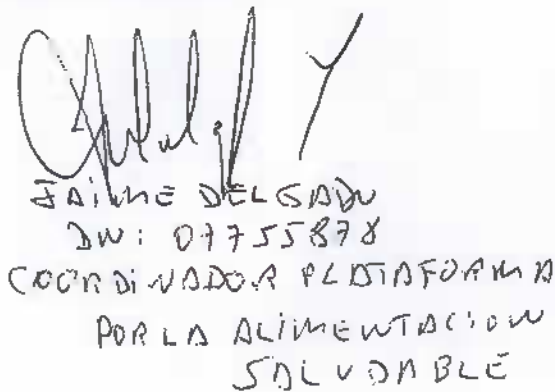 JAIME DELGADO
DNI: 07755878
COORDINADOR PLATAFORMA
POR LA ALIMENTACION
SALUDABLE